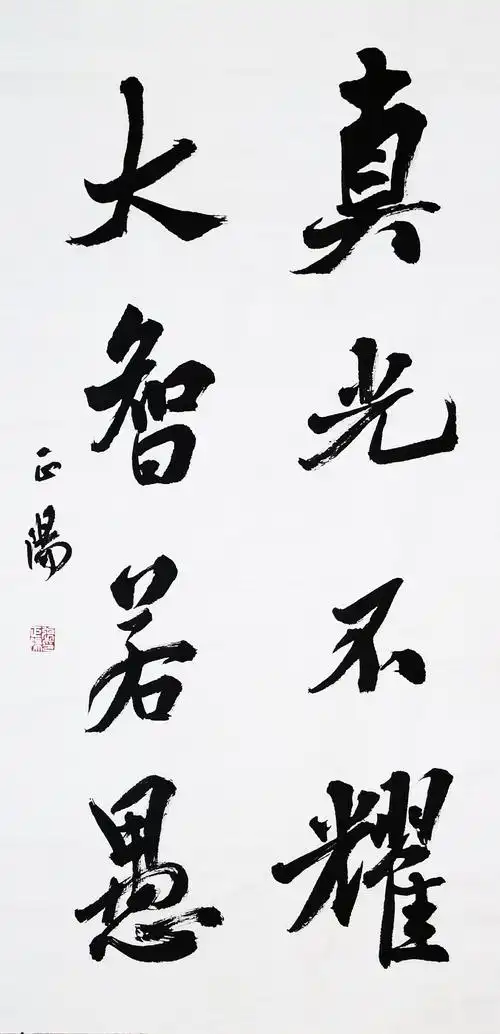 真光不耀
大智若愚
正陽